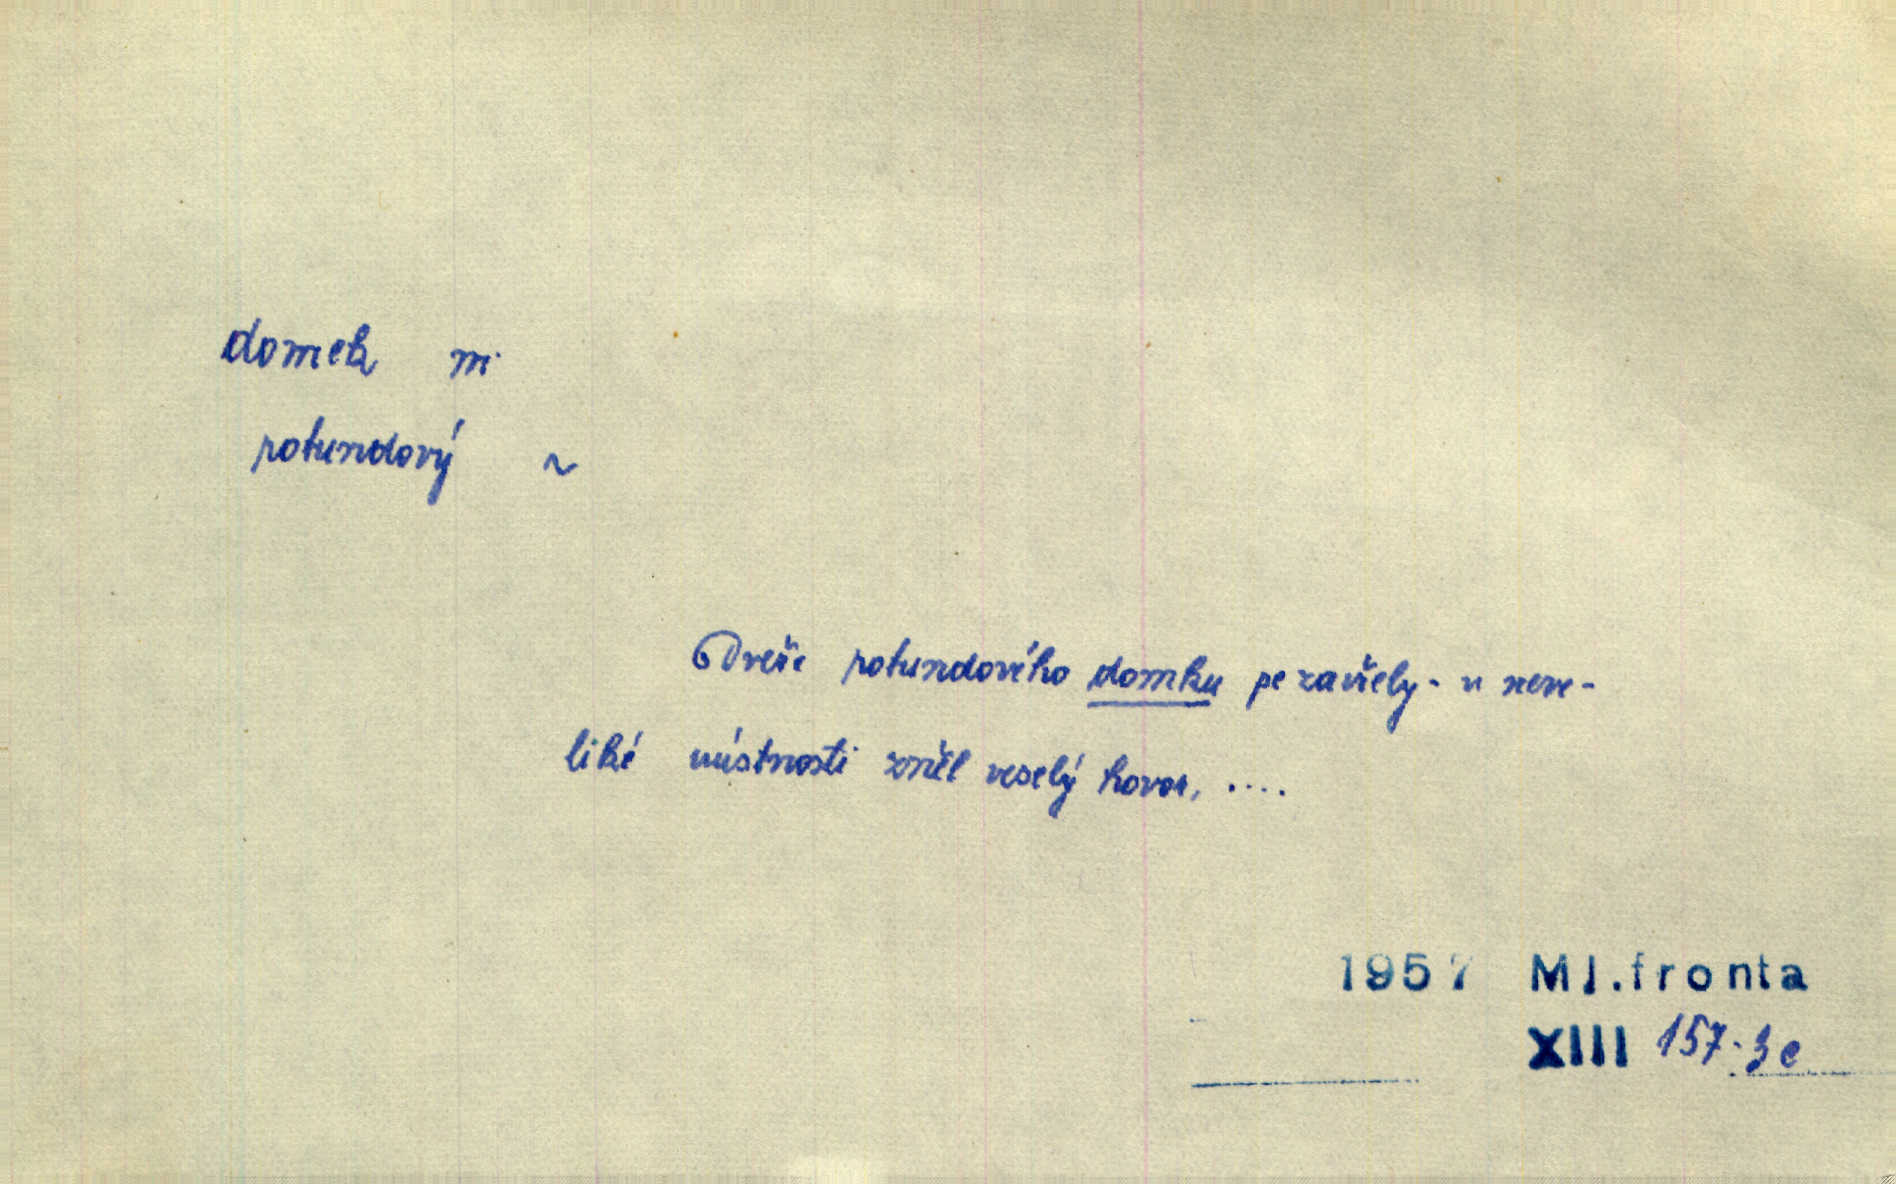 domek m.
rotundový ~
Dveře rotundového domku se zavřely - v neve-
liké místnosti zněl veselý hovor, ....
1957 Ml.fronta
XIII 157.3c